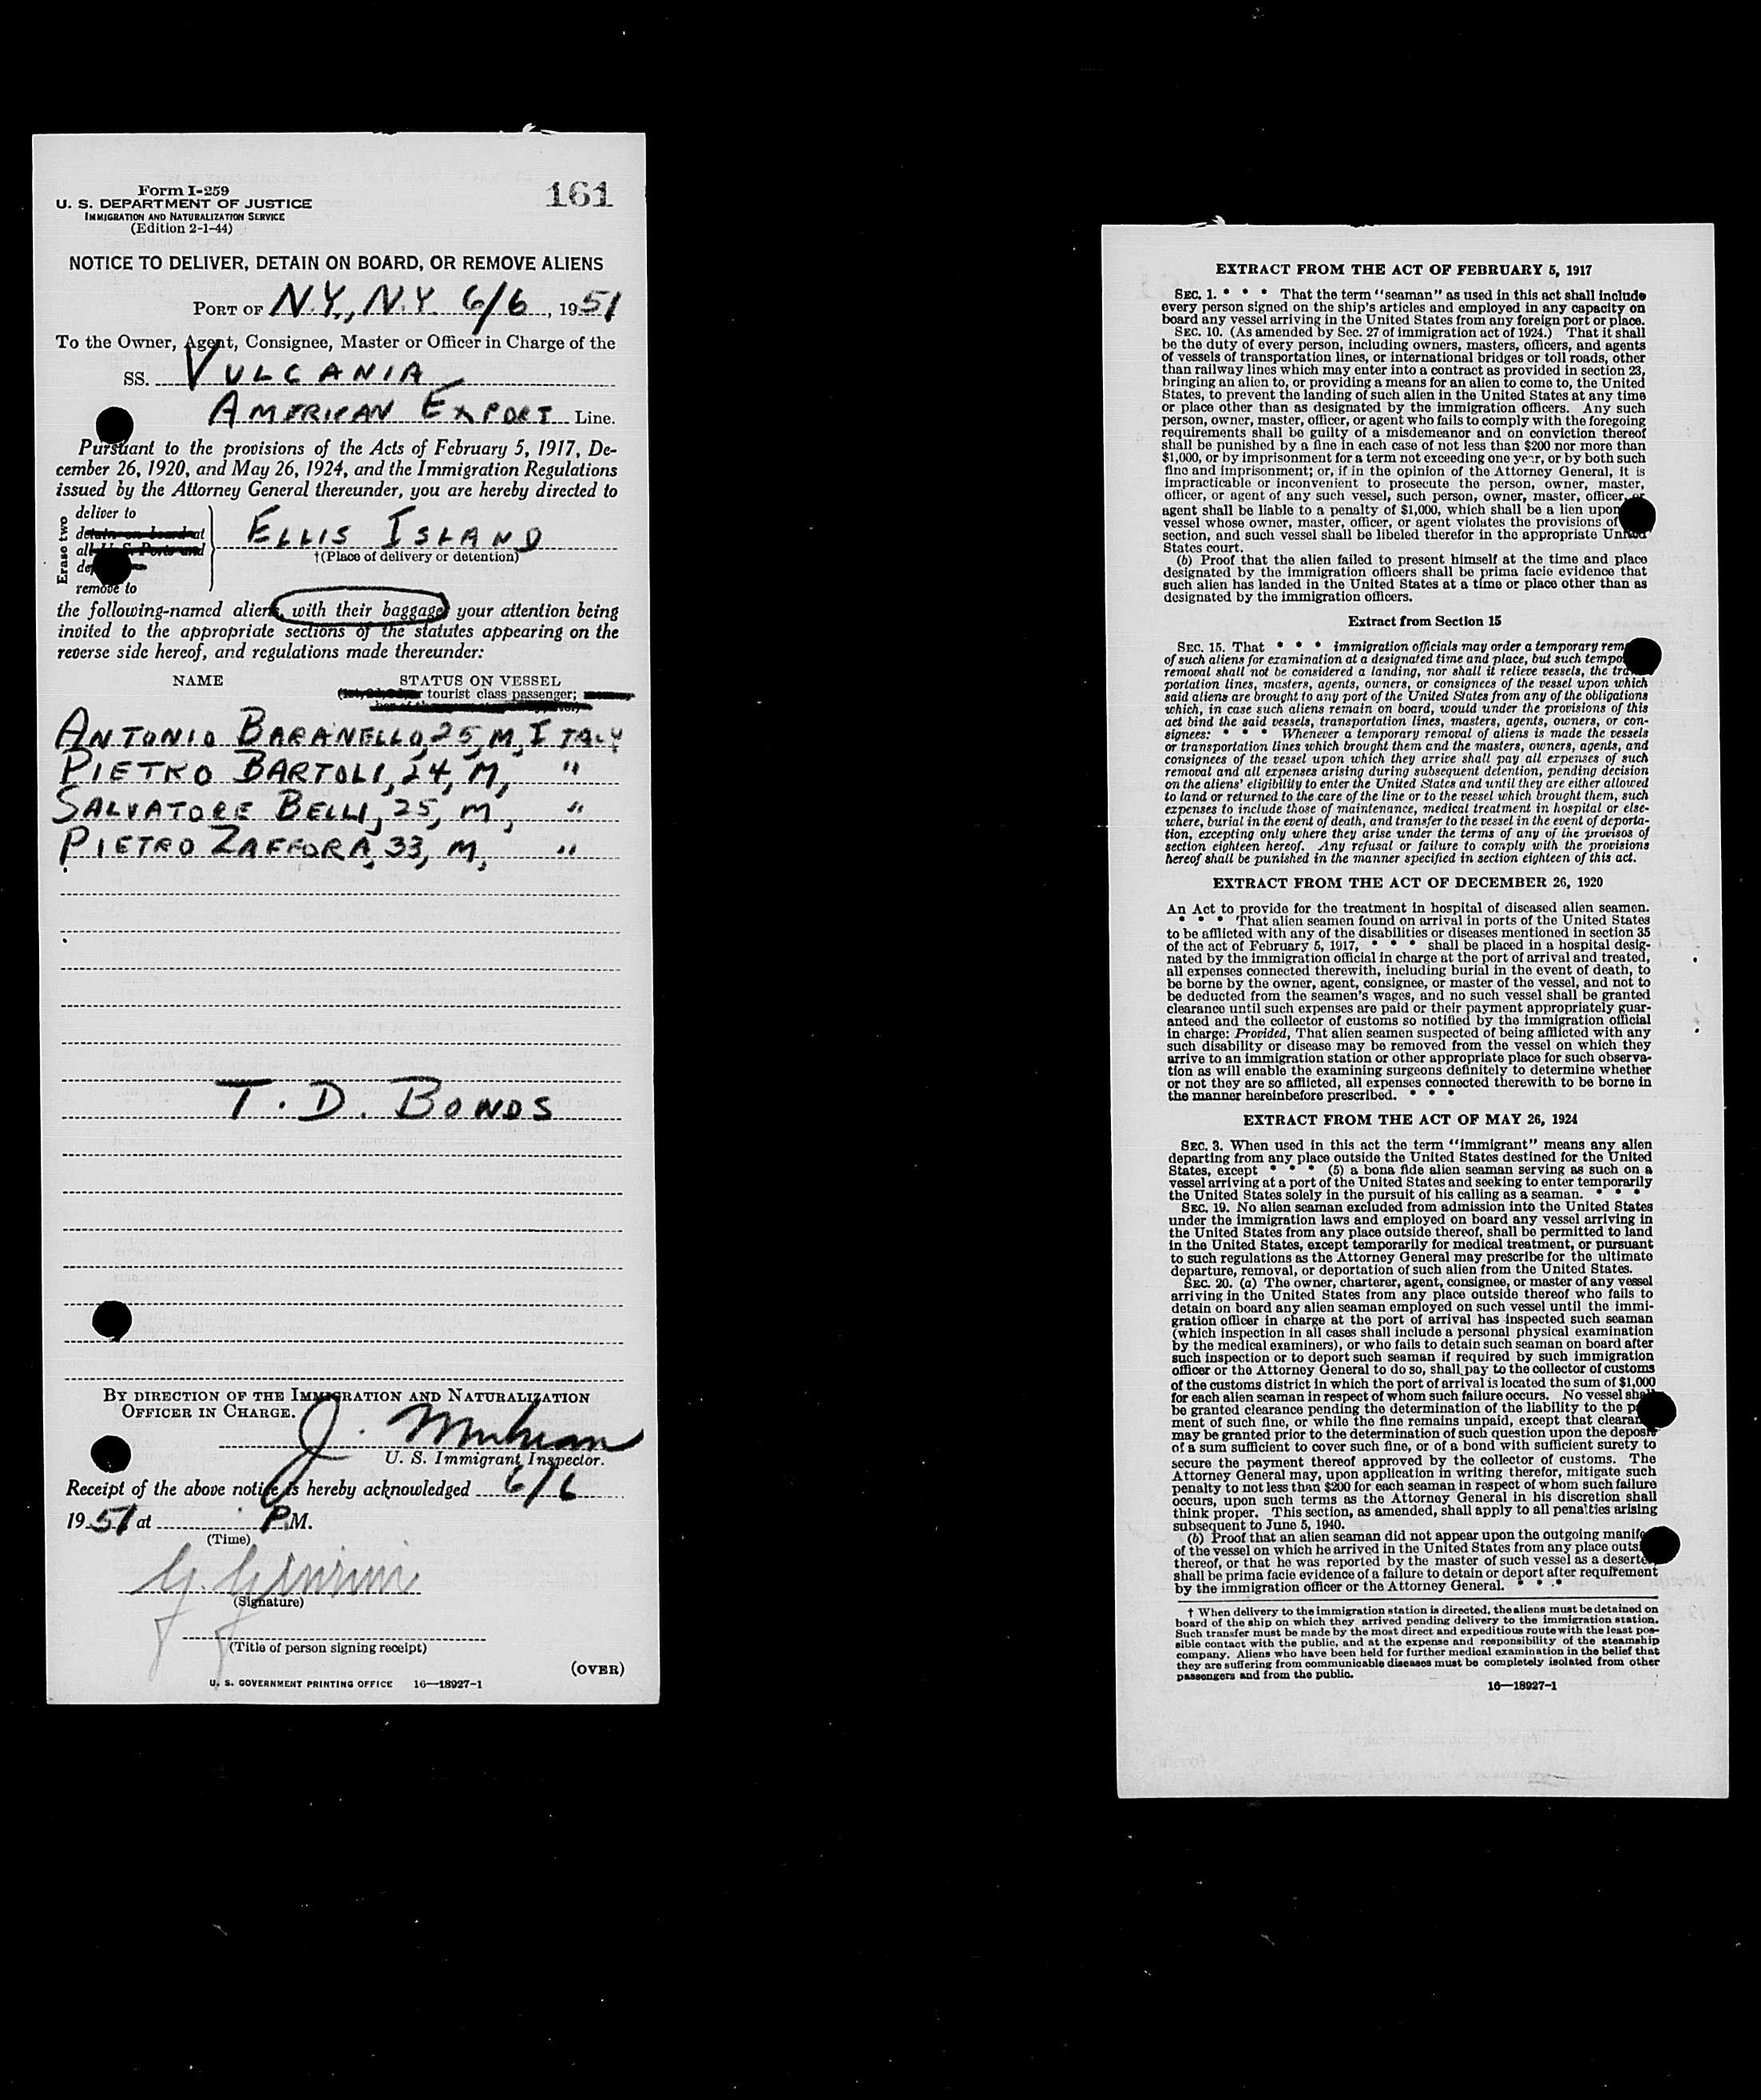 Form I-259
161
U. S. DEPARTMENT OF JUSTICE
IMMIGRATION AND NATURALIZATION SERVICE
(Edition 2-1-44)
NOTICE TO DELIVER, DETAIN ON BOARD, OR REMOVE ALIENS
PORT OF N.Y., N.Y. 6/6, 1951
To the Owner, Agent, Consignee, Master or Officer in Charge of the
SS. VULCANIA
AMERICAN EXPORT Line.
Pursuant to the provisions of the Acts of February 5, 1917, De-
cember 26, 1920, and May 26, 1924, and the Immigration Regulations
issued by the Attorney General thereunder, you are hereby directed to
Erase two
deliver to
detain on board at
all U. S. Ports and
remove to
ELLIS ISLAND
†(Place of delivery or detention)
the following-named aliens, with their baggage your attention being
invited to the appropriate sections of the statutes appearing on the
reverse side hereof, and regulations made thereunder:
NAME STATUS ON VESSEL
tourist class passenger;
ANTONIO BARANELLO, 25, M, ITALY
PIETRO BARTOLI, 24, M, "
SALVATORE BELLI, 25, M, "
PIETRO ZAFFORA, 33, M, "
T. D. BONDS
BY DIRECTION OF THE IMMIGRATION AND NATURALIZATION
OFFICER IN CHARGE.
J.
U. S. Immigrant Inspector.
Receipt of the above notice is hereby acknowledged 6/6
1951 at P.M.
(Time)
(Signature)
(Title of person signing receipt)
(OVER)
U. S. GOVERNMENT PRINTING OFFICE 16—18927-1
EXTRACT FROM THE ACT OF FEBRUARY 5, 1917
SEC. 1. * * * That the term "seaman" as used in this act shall include
every person signed on the ship's articles and employed in any capacity on
board any vessel arriving in the United States from any foreign port or place.
SEC. 10. (As amended by Sec. 27 of immigration act of 1924.) That it shall
be the duty of every person, including owners, masters, officers, and agents
of vessels of transportation lines, or international bridges or toll roads, other
than railway lines which may enter into a contract as provided in section 23,
bringing an alien to, or providing a means for an alien to come to, the United
States, to prevent the landing of such alien in the United States at any time
or place other than as designated by the immigration officers. Any such
person, owner, master, officer, or agent who fails to comply with the foregoing
requirements shall be guilty of a misdemeanor and on conviction thereof
shall be punished by a fine in each case of not less than $200 nor more than
$1,000, or by imprisonment for a term not exceeding one year, or by both such
fine and imprisonment; or, if in the opinion of the Attorney General, it is
impracticable or inconvenient to prosecute the person, owner, master,
officer, or agent of any such vessel, such person, owner, master, officer, or
agent shall be liable to a penalty of $1,000, which shall be a lien upon
vessel whose owner, master, officer, or agent violates the provisions of
section, and such vessel shall be libeled therefor in the appropriate United
States court.
(b) Proof that the alien failed to present himself at the time and place
designated by the immigration officers shall be prima facie evidence that
such alien has landed in the United States at a time or place other than as
designated by the immigration officers.
Extract from Section 15
SEC. 15. That * * * immigration officials may order a temporary rem
of such aliens for examination at a designated time and place, but such tempo
removal shall not be considered a landing, nor shall it relieve vessels, the trans
portation lines, masters, agents, owners, or consignees of the vessel upon which
said aliens are brought to any port of the United States from any of the obligations
which, in case such aliens remain on board, would under the provisions of this
act bind the said vessels, transportation lines, masters, agents, owners, or con-
signees: * * * Whenever a temporary removal of aliens is made the vessels
or transportation lines which brought them and the masters, owners, agents, and
consignees of the vessel upon which they arrive shall pay all expenses of such
removal and all expenses arising during subsequent detention, pending decision
on the aliens' eligibility to enter the United States and until they are either allowed
to land or returned to the care of the line or to the vessel which brought them, such
expenses to include those of maintenance, medical treatment in hospital or else-
where, burial in the event of death, and transfer to the vessel in the event of deporta-
tion, excepting only where they arise under the terms of any of the provisos of
section eighteen hereof. Any refusal or failure to comply with the provisions
hereof shall be punished in the manner specified in section eighteen of this act.
EXTRACT FROM THE ACT OF DECEMBER 26, 1920
An Act to provide for the treatment in hospital of diseased alien seamen.
* * * That alien seamen found on arrival in ports of the United States
to be afflicted with any of the disabilities or diseases mentioned in section 35
of the act of February 5, 1917, * * * shall be placed in a hospital desig-
nated by the immigration official in charge at the port of arrival and treated,
all expenses connected therewith, including burial in the event of death, to
be borne by the owner, agent, consignee, or master of the vessel, and not to
be deducted from the seamen's wages, and no such vessel shall be granted
clearance until such expenses are paid or their payment appropriately guar-
anteed and the collector of customs so notified by the immigration official
in charge: Provided, That alien seamen suspected of being afflicted with any
such disability or disease may be removed from the vessel on which they
arrive to an immigration station or other appropriate place for such observa-
tion as will enable the examining surgeons definitely to determine whether
or not they are so afflicted, all expenses connected therewith to be borne in
the manner hereinbefore prescribed. * * *
EXTRACT FROM THE ACT OF MAY 26, 1924
SEC. 3. When used in this act the term "immigrant" means any alien
departing from any place outside the United States destined for the United
States, except * * * (5) a bona fide alien seaman serving as such on a
vessel arriving at a port of the United States and seeking to enter temporarily
the United States solely in the pursuit of his calling as a seaman. * * *
SEC. 19. No alien seaman excluded from admission into the United States
under the immigration laws and employed on board any vessel arriving in
the United States from any place outside thereof, shall be permitted to land
in the United States, except temporarily for medical treatment, or pursuant
to such regulations as the Attorney General may prescribe for the ultimate
departure, removal, or deportation of such alien from the United States.
SEC. 20. (a) The owner, charterer, agent, consignee, or master of any vessel
arriving in the United States from any place outside thereof who fails to
detain on board any alien seaman employed on such vessel until the immi-
gration officer in charge at the port of arrival has inspected such seaman
(which inspection in all cases shall include a personal physical examination
by the medical examiners), or who fails to detain such seaman on board after
such inspection or to deport such seaman if required by such immigration
officer or the Attorney General to do so, shall pay to the collector of customs
of the customs district in which the port of arrival is located the sum of $1,000
for each alien seaman in respect of whom such failure occurs. No vessel shall
be granted clearance pending the determination of the liability to the p
ment of such fine, or while the fine remains unpaid, except that clearan
may be granted prior to the determination of such question upon the deposit
of a sum sufficient to cover such fine, or of a bond with sufficient surety to
secure the payment thereof approved by the collector of customs. The
Attorney General may, upon application in writing therefor, mitigate such
penalty to not less than $200 for each seaman in respect of whom such failure
occurs, upon such terms as the Attorney General in his discretion shall
think proper. This section, as amended, shall apply to all penalties arising
subsequent to June 5, 1940.
(b) Proof that an alien seaman did not appear upon the outgoing manife
of the vessel on which he arrived in the United States from any place outsi
thereof, or that he was reported by the master of such vessel as a deserter
shall be prima facie evidence of a failure to detain or deport after requirement
by the immigration officer or the Attorney General. * * *
† When delivery to the immigration station is directed, the aliens must be detained on
board of the ship on which they arrived pending delivery to the immigration station.
Such transfer must be made by the most direct and expeditious route with the least pos-
sible contact with the public, and at the expense and responsibility of the steamship
company. Aliens who have been held for further medical examination in the belief that
they are suffering from communicable diseases must be completely isolated from other
passengers and from the public.
16—18927-1